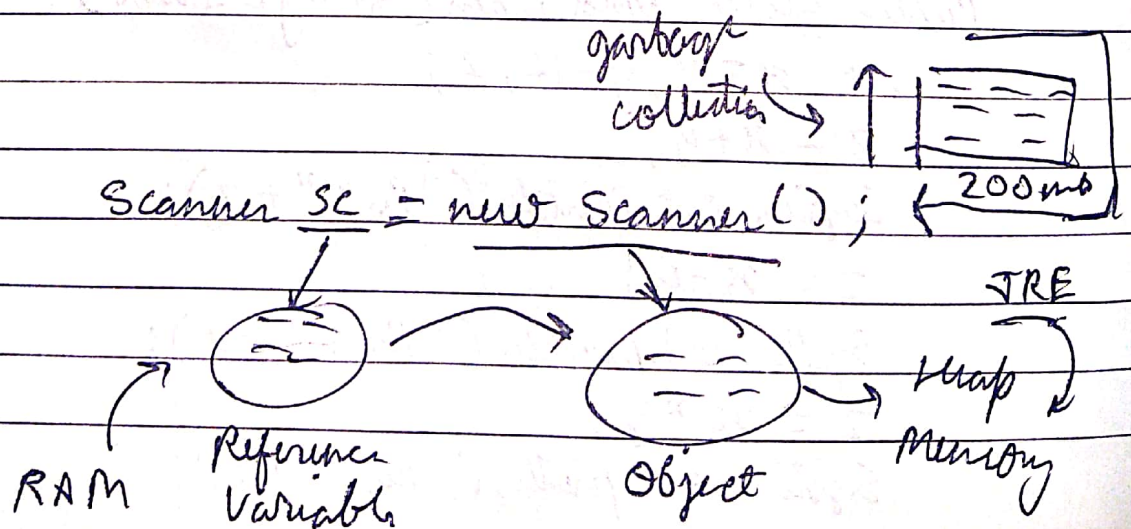 garbage
collection
200mb
Scanner sc = new Scanner() ;
JRE
Heap
Memory
RAM
Reference
Variable
Object